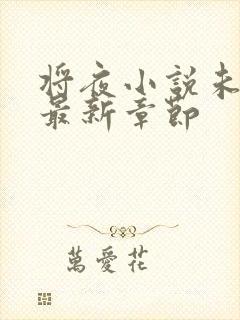 将夜小說未
最新章節
萬愛花